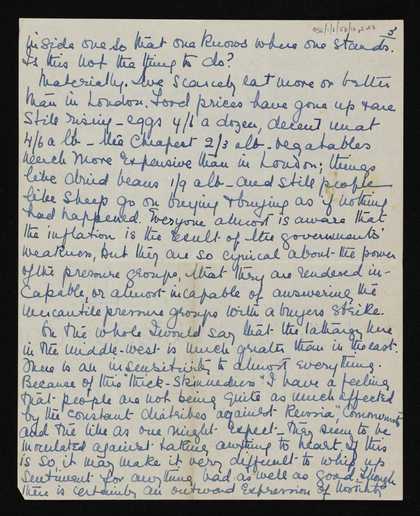 3
inside one so that one knows where one stands.
Is this not the thing to do?
Materially. I've scarcely eat more or better
than in London. Food prices have gone up & are
still rising - eggs 4/6 a dozen, decent meat
4/6 a lb - the cheapest 2/3 a lb - vegetables
much more expensive than in London; things
like dried beans 1/9 a lb - and still people
like sheep go on buying & buying as if nothing
had happened. Everyone almost is aware that
the inflation is the result of the governments'
weakness, but they are so cynical about the power
of the pressure groups, that they are rendered in-
capable, or almost incapable of answering the
mercantile pressure groups with a buyers strike.
On the whole I would say that the lethargy here
in the middle-west is much greater than in the east.
There is an insensitivity to almost everything.
Because of this "thick-skinnedness" I have a feeling
that people are not being quite as much affected
by the constant diatribes against Russia, communists
and the like as one might expect - they seem to be
inoculated against taking anything to heart. If this
is so, it may make it very difficult to whip up
sentiment for anything bad as well as good though
there is certainly an outward expression of